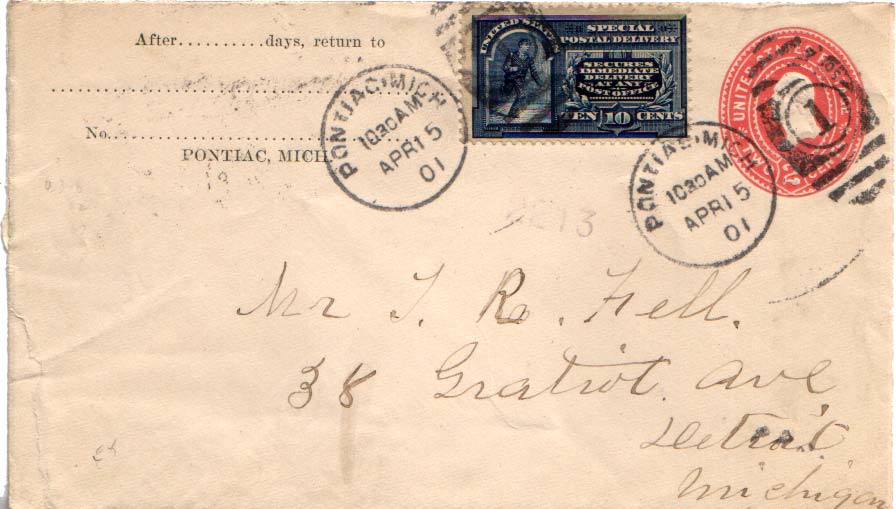 After..........days, return to
No.
PONTIAC, MICH.
UNITED STATES
SPECIAL
POSTAL DELIVERY
SECURES
IMMEDIATE
DELIVERY
AT ANY
POST OFFICE
TEN 10 CENTS
PONTIAC, MICH
1030 AM
APR 15
01
PONTIAC, MICH
1030 AM
APR 15
01
UNITED
1
Mr
R. Fell.
38 Gratiot Ave
Detroit
Michigan